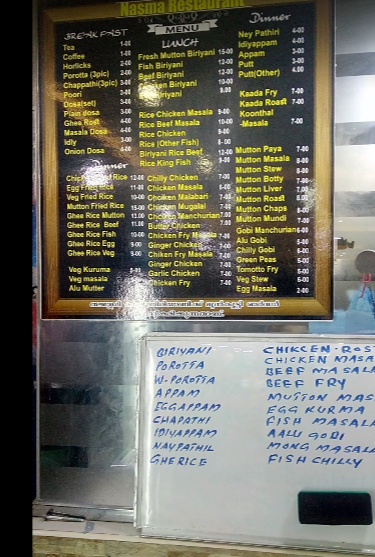 Nasma Restaurant
MENU
BREAK FAST
Tea 1-00
Coffee 1-00
Horlicks 2-00
Porotta (3pic) 2-00
Chappathi(3pic) 3-00
Poori 3-00
Dosa(set) 3-00
Plain dosa 3-00
Ghee Rost 4-00
Masala Dosa 4-00
Idly 3-00
Onion Dosa
LUNCH
Fresh Mutton Biriyani 15-00
Fish Biriyani 12-00
Beef Biriyani 12-00
Biriyani
Biriyani
Rice Chicken Masala 9-00
Rice Beef Masala 10-00
Rice Chicken 9-00
Rice (Other Fish) 8-00
Biriyani Rice Beef 12-00
Rice King Fish
Dinner
Ney Pathiri
Idiyappam 4-00
Appam 3-00
Putt 3-00
Putt(Other) 4.00
Kaada Fry 7-00
Kaada Roast 7-00
Koonthal
-Masala 7-00
Mutton Paya 7-00
Mutton Masala 8-00
Mutton Stew 8-00
Mutton Botty 7-00
Mutton Liver 7-00
Mutton Roast 8-00
Mutton Chaps 8-00
Mutton Mundi 7-00
Gobi Manchurian 6-00
Alu Gobi 5-00
Chilly Gobi 6-00
Green Peas 5-00
Tomotto Fry 5-00
Veg Stew 6-00
Egg Masala 2-00
Dinner
Rice 12-00
Egg Fried Rice 11-00
Veg Fried Rice 10-00
Mutton Fried Rice 15-00
Ghee Rice Mutton 13.00
Ghee Rice Beef 11.00
Ghee Rice Fish 10-00
Ghee Rice Egg 9-00
Ghee Rice Veg 9.00
Veg Kuruma
Veg masala 5-00
Alu Mutter
Chilly Chicken 7-00
Chicken Masala 6-00
Chicken Malabari 7-00
Chicken Mugalai 7-00
Chicken Manchurian 7-00
Butter Chicken 7-00
Chicken Fry Masala 7-00
Ginger Chicken 7-00
Chiken Fry Masala 7-00
Ginger Chicken 7-00
Garlic Chicken 7-00
Chicken Fry 7-00
BIRIYANI
POROTTA
W. POROTTA
APPAM
EGGAPPAM
CHAPATHI
IDIYAPPAM
NAYPATHIL
GHERICE
CHIKCEN-ROST
CHICKEN MASA
BEEF MASALA
BEEF FRY
MUTTON MAS
EGG KURMA
FISH MASALA
AALU GOBI
MONG MASALA
FISH CHILLY